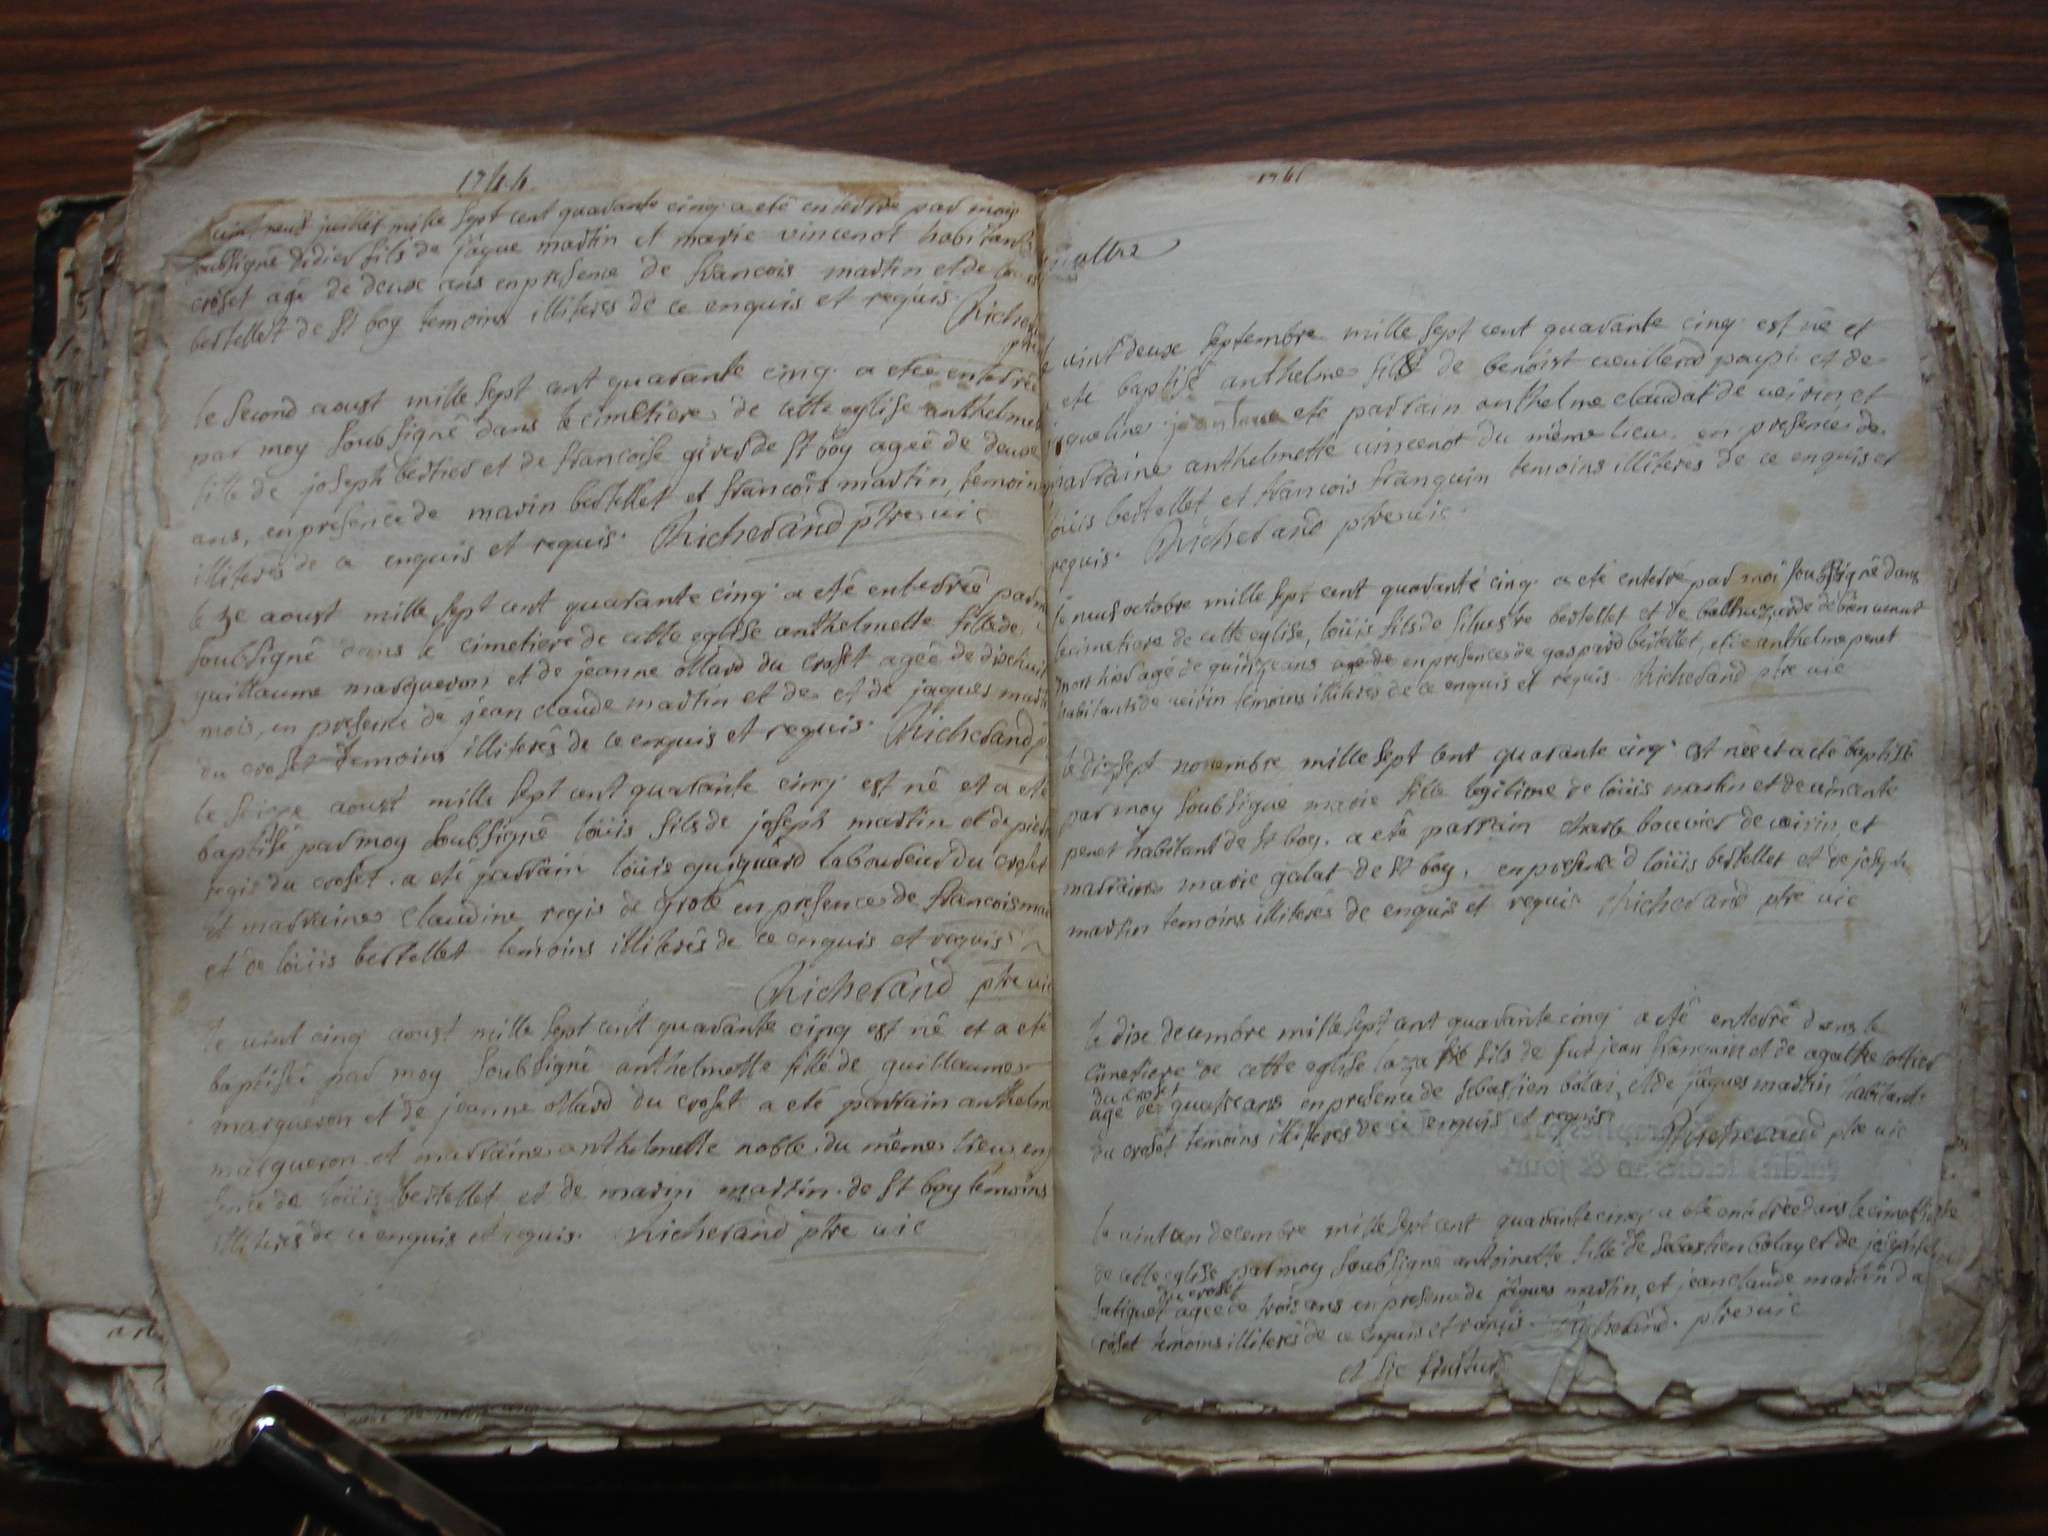 1744
neuf juillet mille sept cent quarante cinq a eté enterré par moy
soubsigné didier fils de jâque martin et marie vincenot habitants
croset agé de deux ans en presence de francois martin et de
bertellet de st boy temoins illiterés de ce enquis et requis. Richer
ptre
le second aoust mille sept cent quarante cinq a eté enterrée
par moy soubsigné dans le cimetiere de cette eglise anthelmet
fille de joseph bertier et de francoise girer de st boy agée de deux
ans, en presence de marin bertellet et francois martin, temoins
illiterés de ce enquis et requis. Richerand ptre vic
le 3e aoust mille sept cent quarante cinq a eté enterrée par m
soubsigné dans le cimetiere de cette eglise anthelmette fille de
guillaume margueron et de jeanne ollard du croset agée de dixhuit
mois, en presence de jean claude martin et de et de jaques mart
du croset temoins illiterés de ce enquis et requis. Richerand p
le seize aoust mille sept cent quarante cinq est né et a eté
baptisé par moy soubsigné loüis fils de joseph martin et de
regis du croset. a eté parrain loüis guiguard laboureur du croset
et marraine claudine regis de grole en presence de francois mar
et de loüis bertellet temoins illiterés de ce enquis et requis
Richerand ptre vic
le vint cinq aoust mille sept cent quarante cinq est né et a eté
baptisée par moy soubsigné anthelmette fille de guillaume
margueron et de jeanne ollard du croset a eté parrain anthelm
margueron et marraine anthelmette noble du même lieu en p
sence de loüis bertellet et de marin martin de st boy temoins
illiterés de ce enquis et requis. Richerand ptre vic
1745
vint deux septembre mille sept cent quarante cinq est né et
eté baptisé anthelme fils de benoist veuillerd paysi et de
jaqueline eté parrain anthelme claudat de veirin, et
marraine anthelmette vincenot du même lieu en presence de
loüis bertellet et francois franquin temoins illiterés de ce enquis et
requis. Richerand ptre vic.
le neuf octobre mille sept cent quarante cinq a eté enterré par moi soubsigné dans
le cimetiere de cette eglise, loüis fils de siluestre bertellet et de balthazarde de bienvenut
mort hier agé de quinze ans en presence de gaspard bertellet, et de anthelme penet
habitants de veirin temoins illiterés de ce enquis et requis. Richerand ptre vic
le dixsept novembre mille sept cent quarante cinq est née et a eté baptisée
par moy soubsigné marie fille legitime de loüis martin et de vincente
penet habitant de st boy. a eté parrain charle bouvier de veirin, et
marraine marie galat de st boy, en presence d loüis bertellet et de joseph
martin temoins illiterés de enquis et requis Richerand ptre vic
le dix decembre mille sept cent quarante cinq a eté enterré dans le
cimetiere de cette eglise laza fils de fut jean franquin et de agathe cottier
du croset
agé de quatre ans en presence de sebastien bolai, et de jâques martin habitants
du croset temoins illiterés de ce enquis et requis Richerand ptre vic
le vint un decembre mille sept cent quarante cinq a eté enterrée dans le cimetiere
de cette eglise par moy soubsigné antoinette fille de sebastien bolay et de
du croset
agée de trois ans en presence de jâques martin, et jean claude martin du
croset temoins illiterés de ce enquis et requis. Richerand. ptre vic
et sic finitur